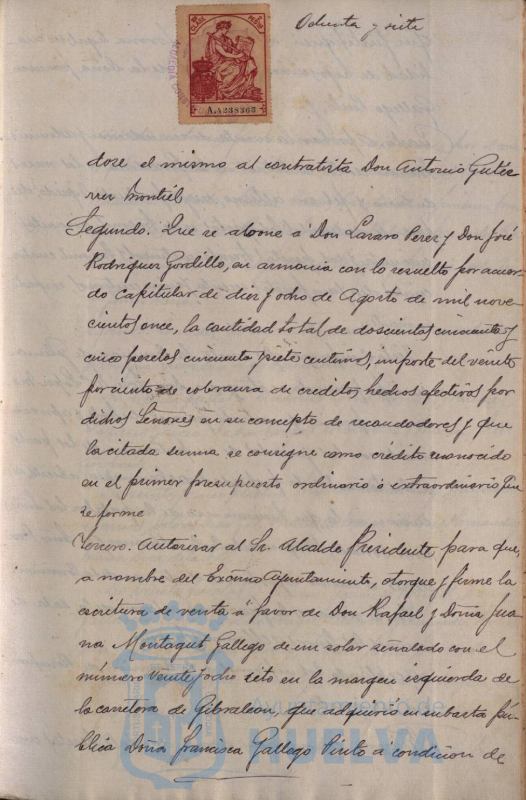 Ochenta y siete
A.4238363
dose el mismo al contratista Don Antonio Gutié-
rrez Montiel
Segundo. Que se abone á Don Lazaro Perez y Don José
Rodriguez Gordillo, en armonia con lo resuelto por acuer-
do capitular de diez y ocho de Agosto de mil nove-
cientos once, la cantidad total de doscientas cincuenta y
cinco pesetas cincuenta y siete centimos, importe del veinte
por ciento de cobranza de creditos hechos efectivos por
dichos Señores en su concepto de recaudadores y que
la citada suma se consigne como crédito reconocido
en el primer presupuesto ordinario ó extraordinario que
se forme
Tercero. Autorizar al Sr. Alcalde Presidente para que,
a nombre del Excmo Ayuntamiento, otorgue y firme la
escritura de venta á favor de Don Rafael y Doña Jua-
na Montagut Gallego de un solar señalado con el
número veinte y ocho sito en la margen izquierda de
la carretera de Gibraleon, que adquirió en subasta pú-
blica Doña Francisca Gallego Pinto á condicion de
Ayuntamiento de
HUELVA